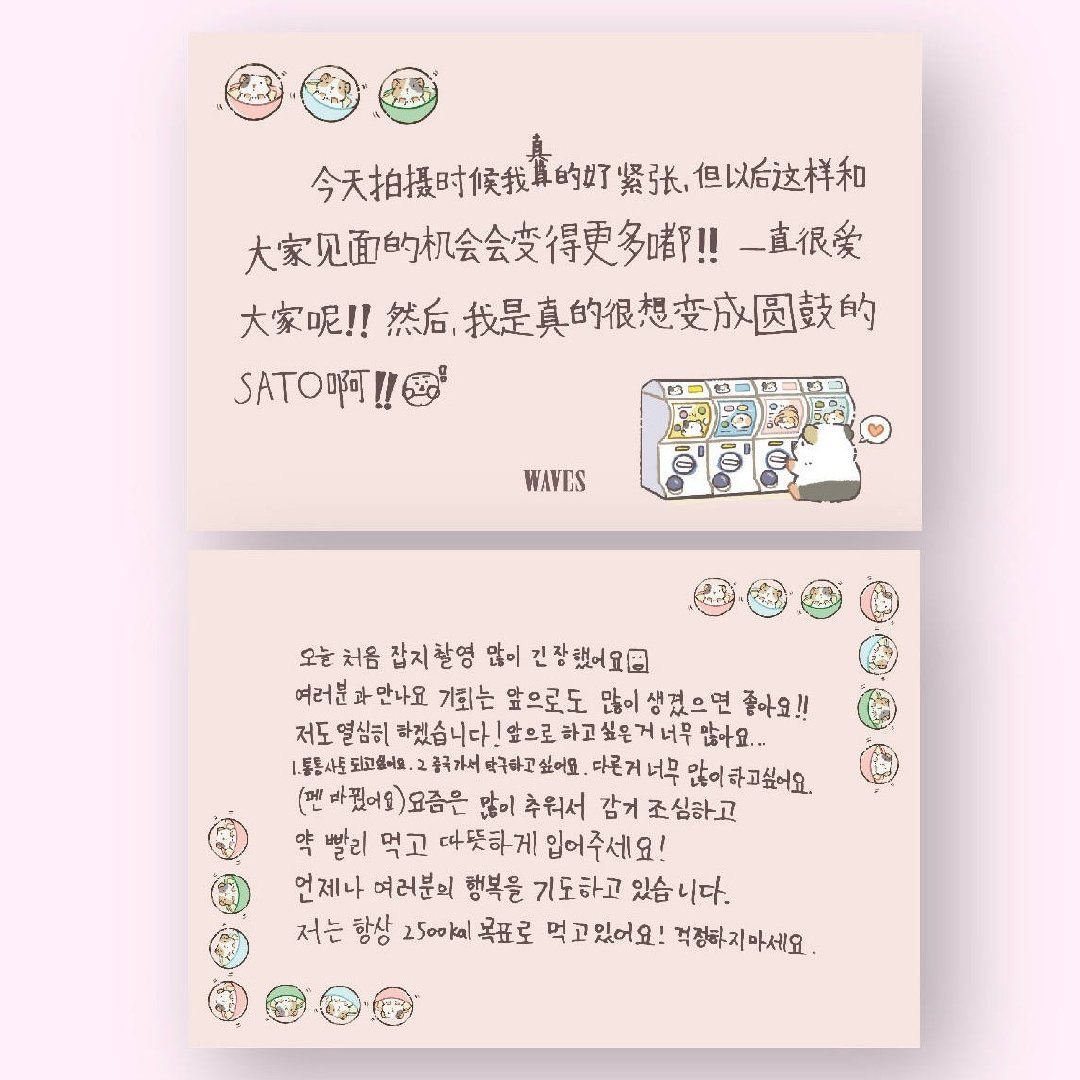 真
今天拍摄时候我真的好紧张,但以后这样和
大家见面的机会会变得更多嘟!! 一直很爱
大家呢!! 然后,我是真的很想变成圆鼓的
SATO啊!!
WAVES
오늘 처음 잡지촬영 많이 긴장했어요
여러분과 만나요 기회는 앞으로도 많이 생겼으면 좋아요!!
저도 열심히 하겠습니다! 앞으로 하고 싶은거 너무 많아요...
1.통통사토 되고싶어요. 2 중국가서 탁구하고 싶어요. 다른거 너무 많이 하고싶어요.
(펜 바꿨어요) 요즘은 많이 추워서 감거 조심하고
약 빨리 먹고 따뜻하게 입어주세요!
언제나 여러분의 행복을 기도하고 있습니다.
저는 항상 2500kal 목표로 먹고있어요! 걱정하지마세요.